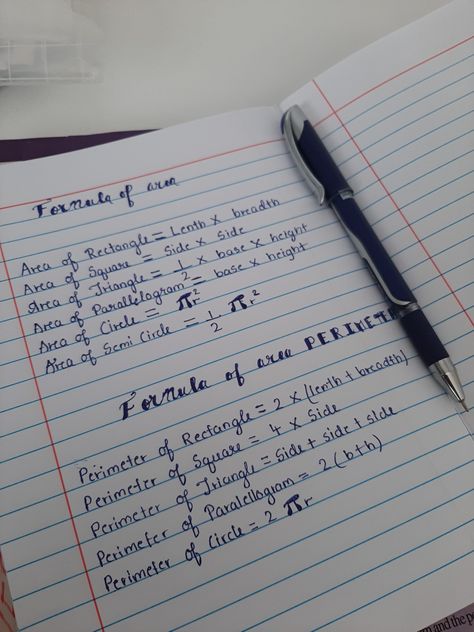 Formula of area
Area of Rectangle = Lenth × breadth
Area of Square = Side × Side
Area of Triangle = 1/2 × base × height
Area of Parallelogram = base × height
Area of Circle = πr²
Area of Semi Circle = 1/2 πr²
Formula of area PERIMETE
Perimeter of Rectangle = 2 × (lenth + breadth)
Perimeter of Square = 4 × Side
Perimeter of Triangle = Side + side + side
Perimeter of Paralellogram = 2 (b+h)
Perimeter of Circle = 2 πr
and the p